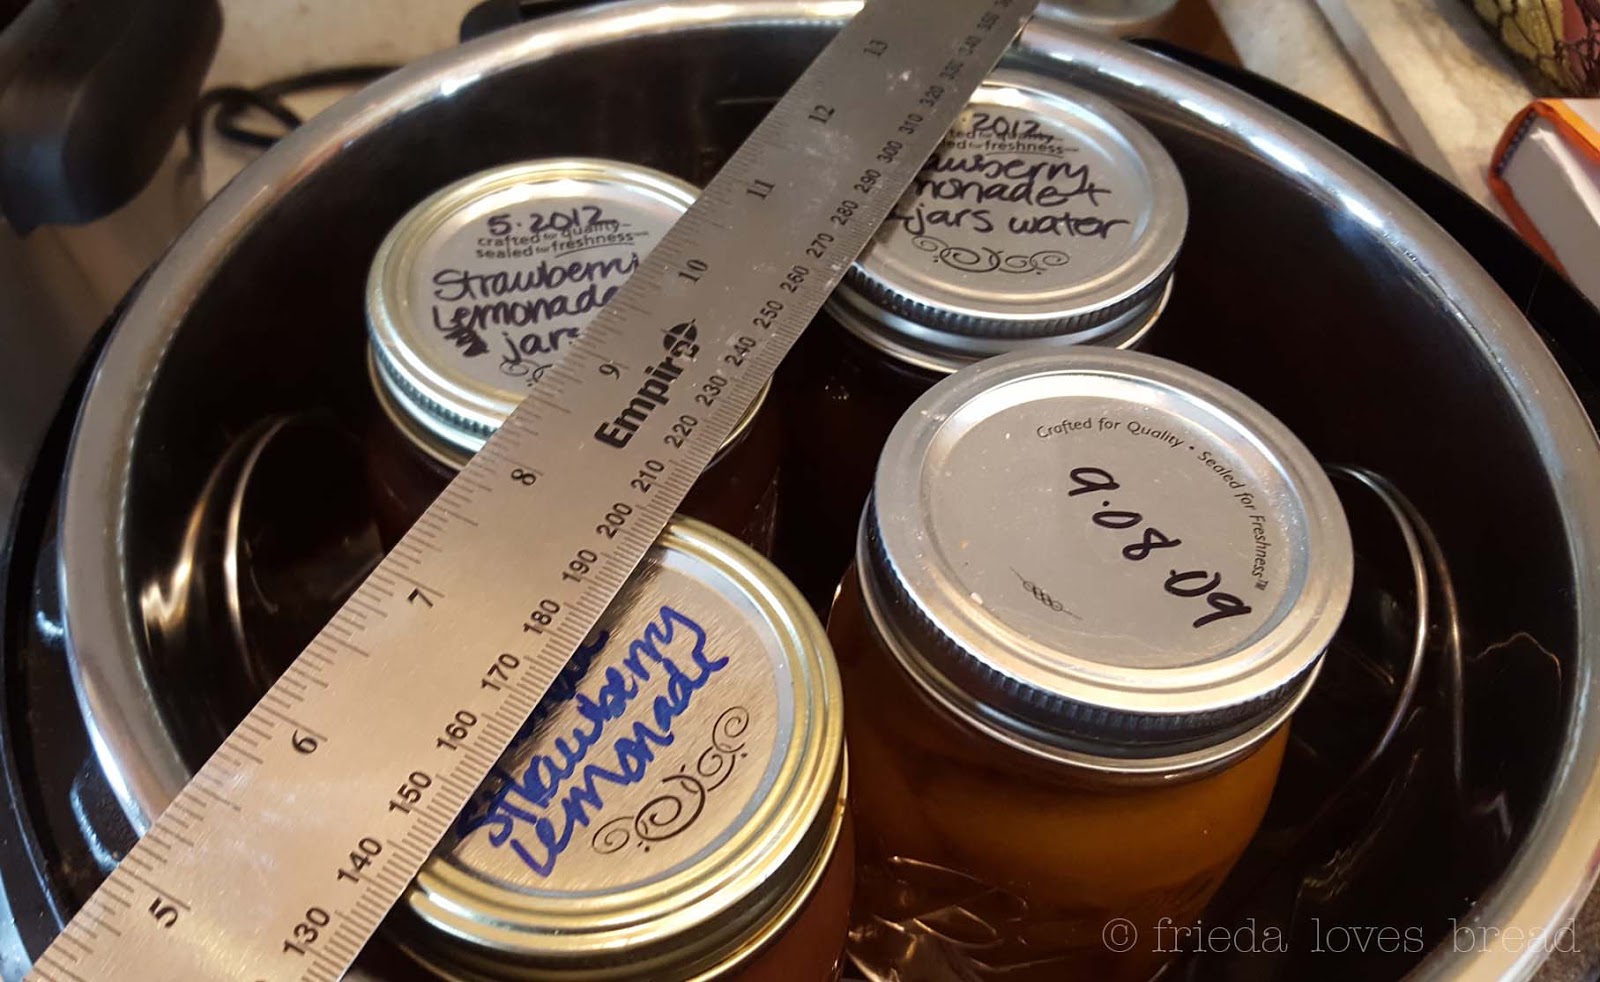 5.2012
crafted for quality
sealed for freshness
Strawberri
Lemonade
jars
2012
for quality
for freshness
jars water
Crafted for Quality • Sealed for Freshness™
9.08.09
Strawberry
Lemonade
Empire
5 6 7 8 9 10 11 12 13
130 140 150 160 170 180 190 200 210 220 230 240 250 260 270 280 290 300 310 320 330 340 350
© frieda loves bread